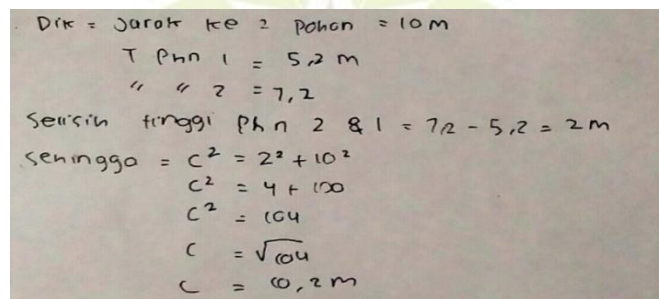 Dik = Jarak ke 2 pohon = 10 m
T Phn 1 = 5,2 m
" " 2 = 7,2
Selisih tinggi Phn 2 & 1 = 7,2 - 5,2 = 2 m
Sehingga = c² = 2² + 10²
c² = 4 + 100
c² = 104
c = √104
c = 10,2 m